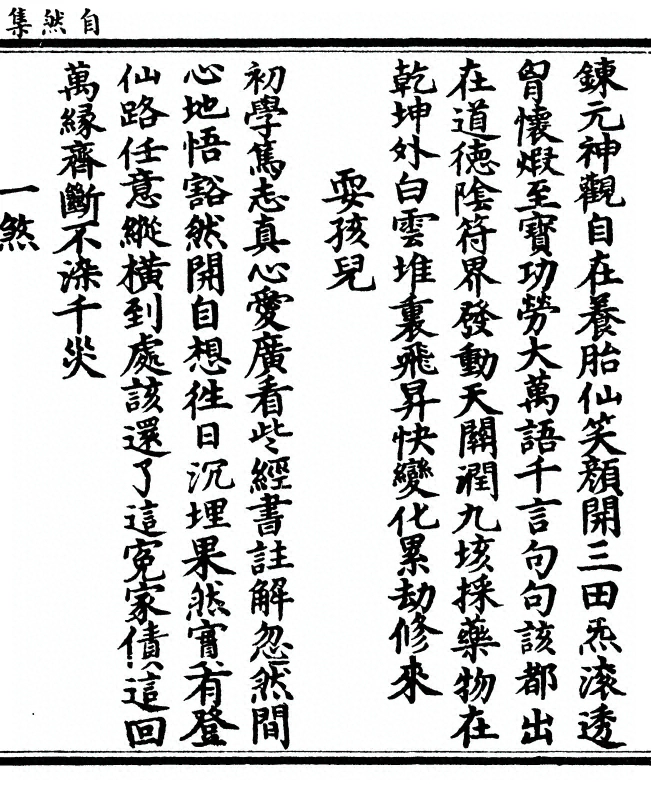 自然集
鍊元神觀自在養胎仙笑顏開三田炁滚透
胷懷煆至寶功勞大萬語千言句句該都出
在道德陰符界發動天關潤九垓採藥物在
乾坤外白雲堆裏飛昇快變化累劫修來
耍孩兒
初學篤志真心愛廣看些經書註解忽然間
心地悟豁然開自想徃日沉埋果然實有登
仙路任意縱橫到處該還了這冤家債這回
萬緣齊斷不染千災
一煞